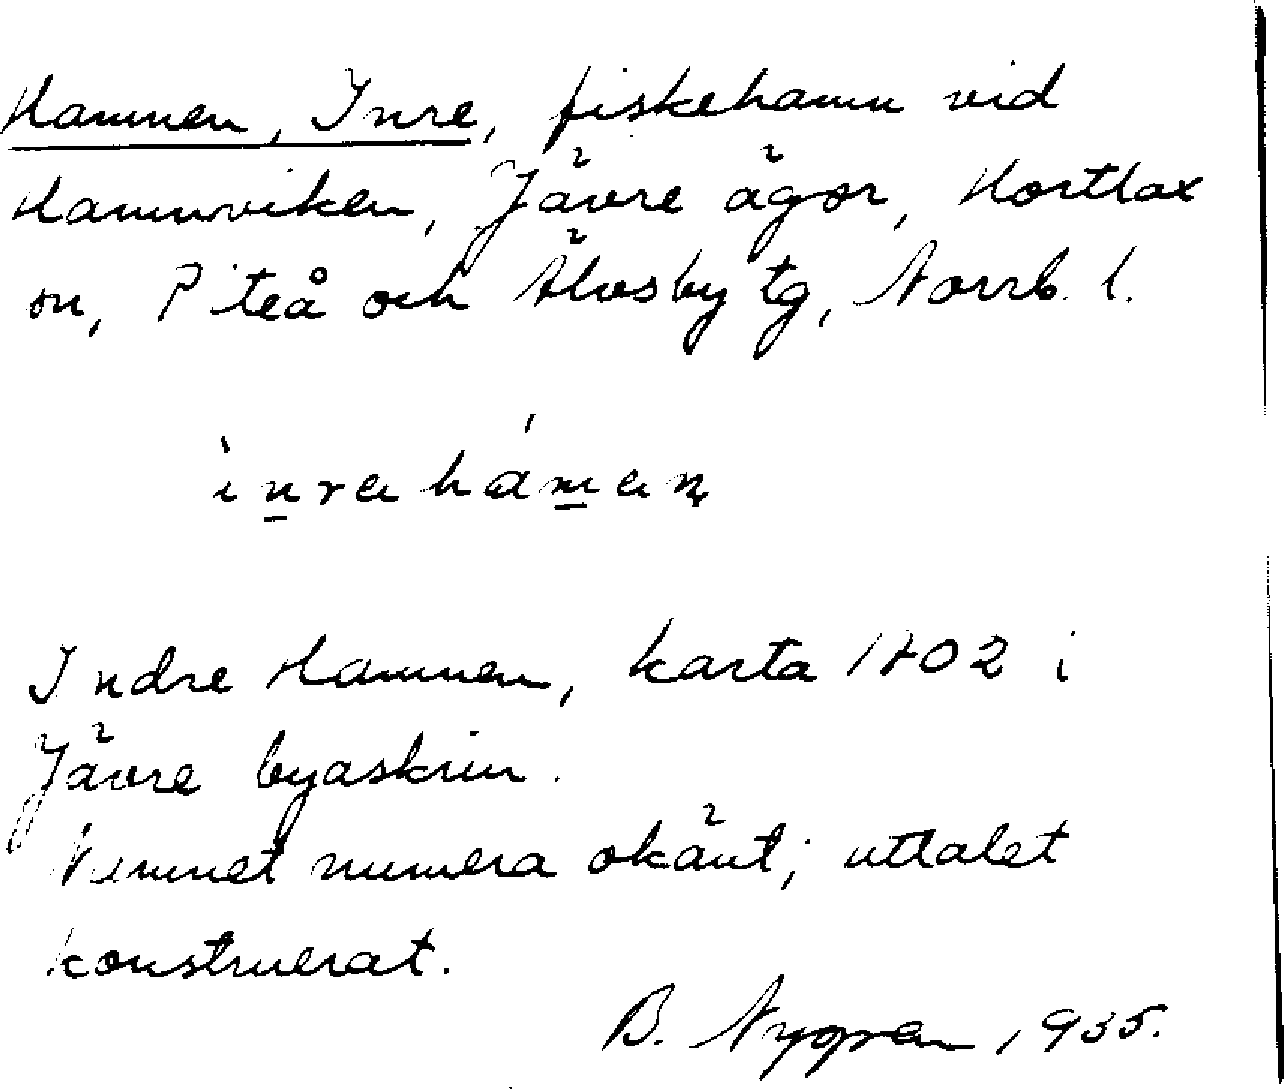 Hamnen, Inre, fiskehamn vid
Hamnviken, Jävre ägor, Hortlax
sn, Piteå och Älvsby tg, Norrb. l.
ìnra háman
Indre Hamnen, karta 1802 i
Jävre byaskrin.
Namnet numera okänt; uttalet
konstruerat.
B. Nygren, 1935.